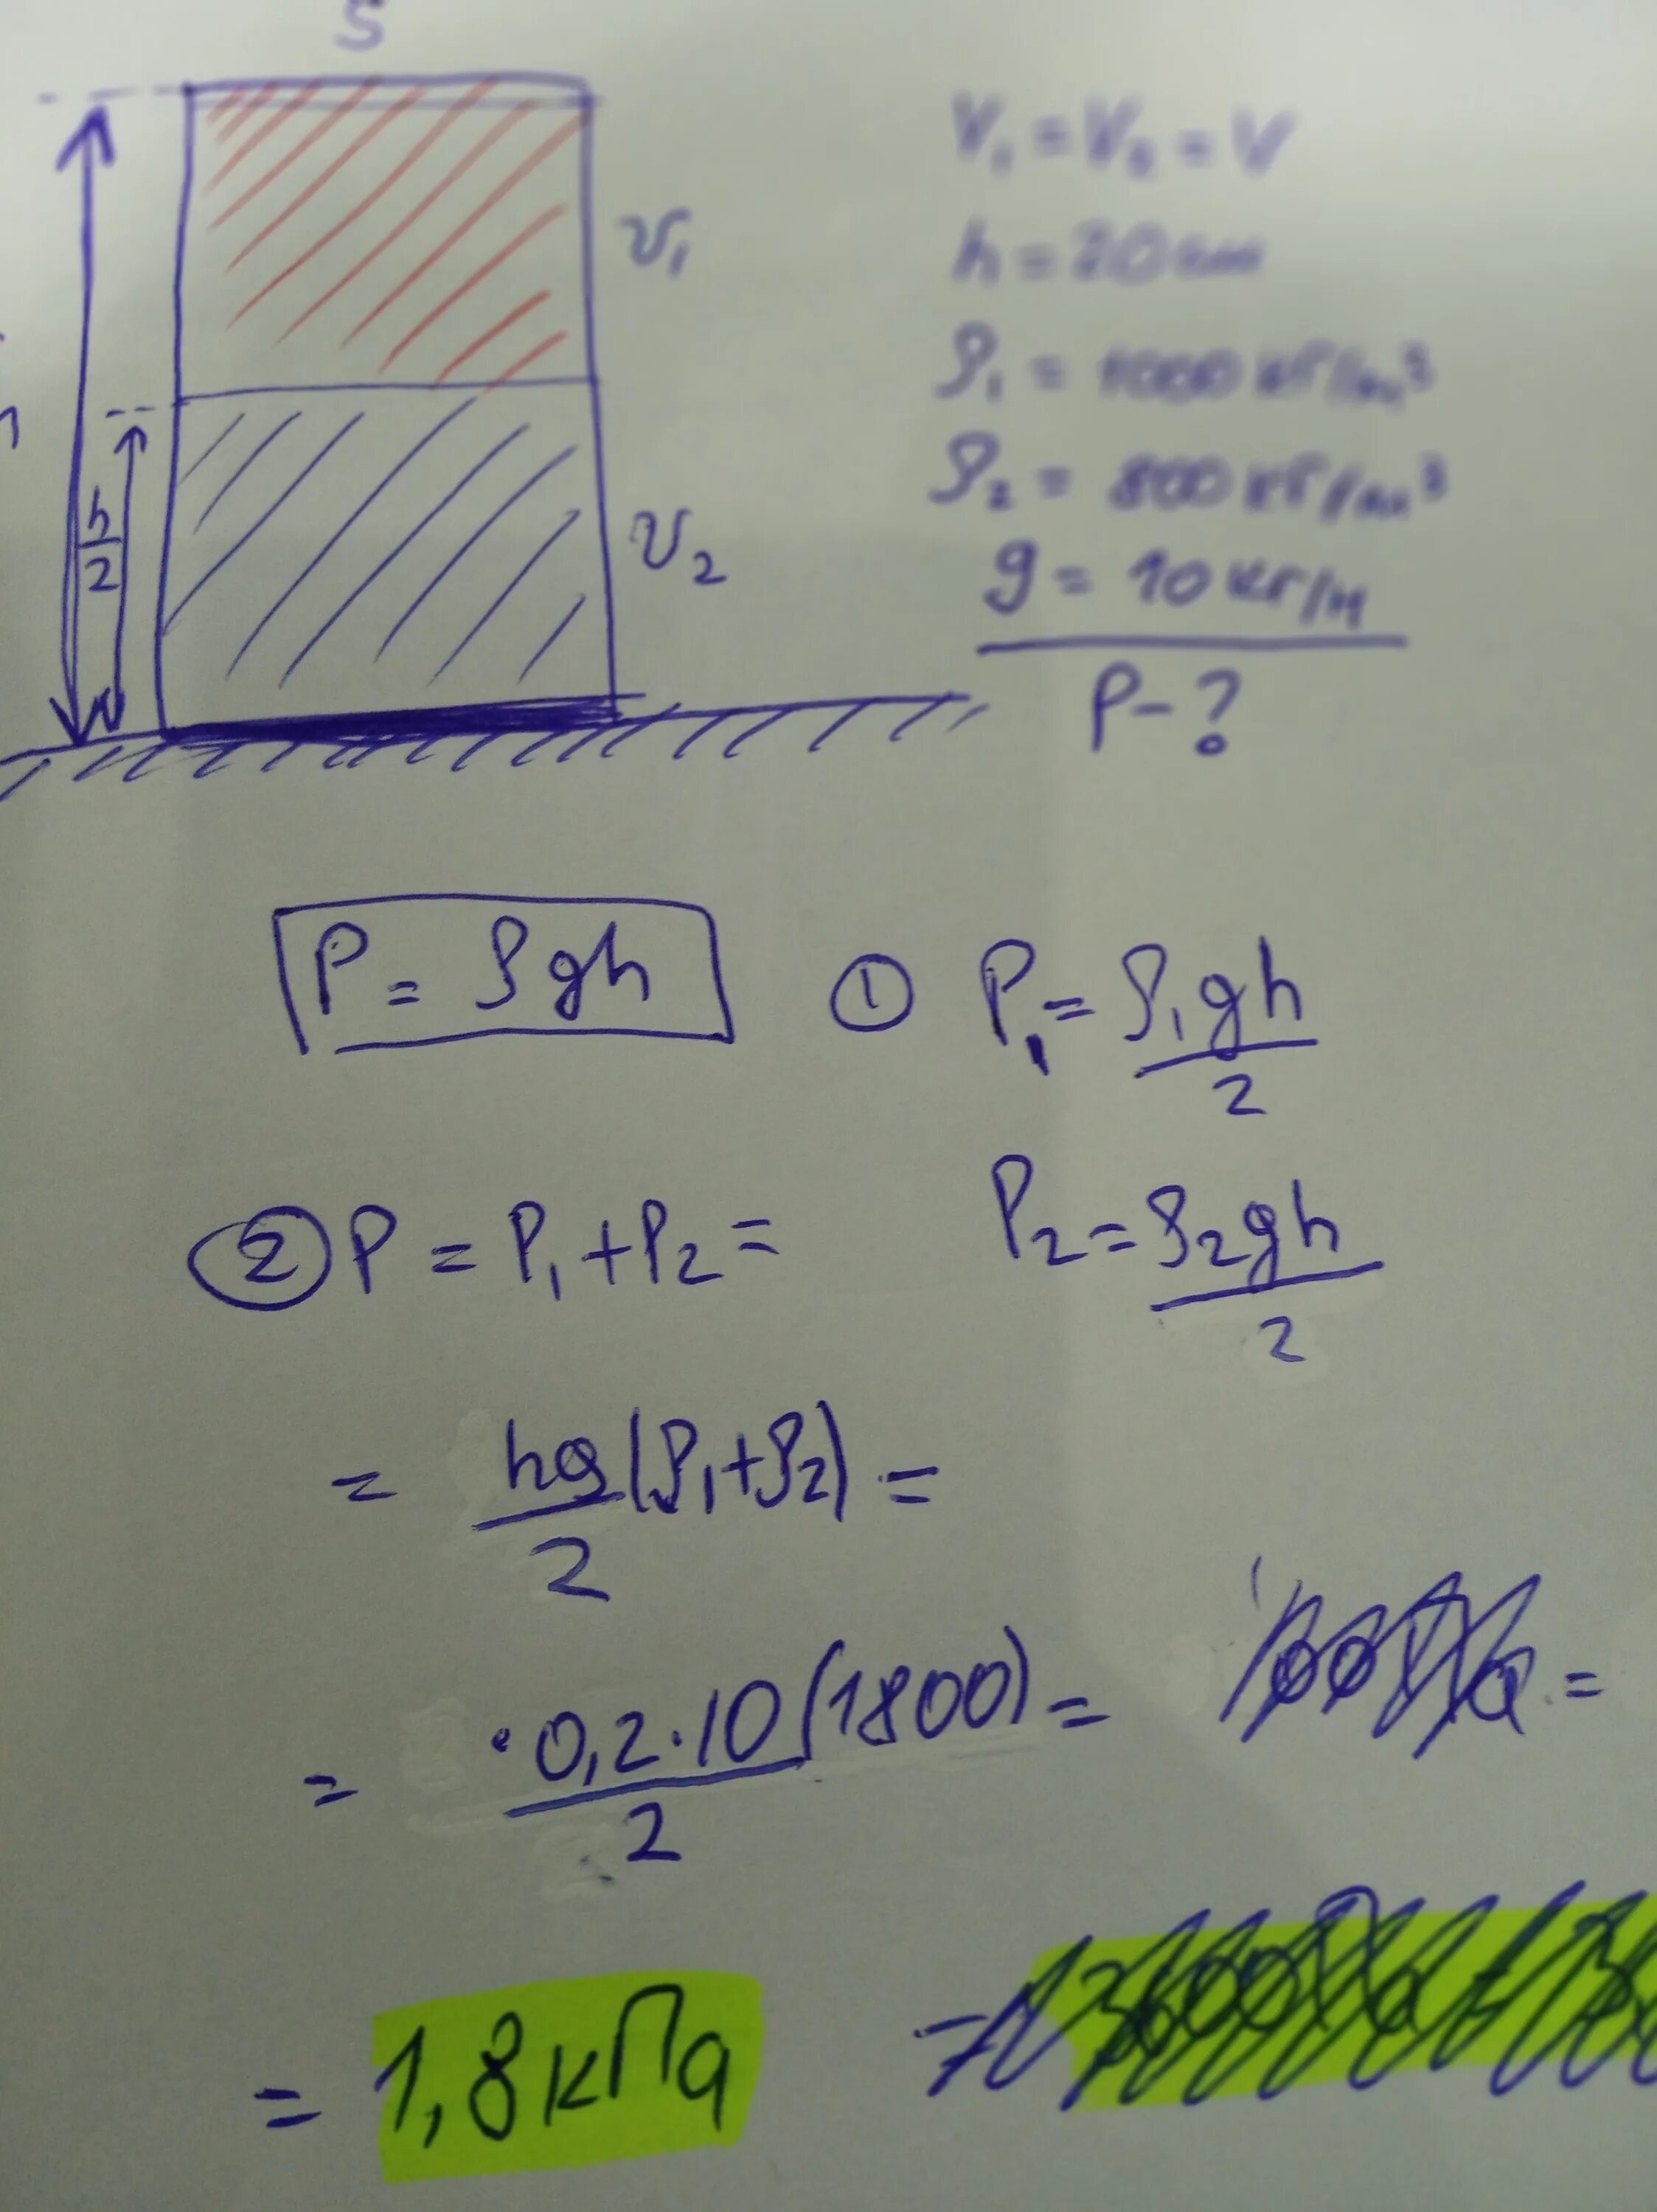 S
h
h/2
v₁
v₂
V₁ = V₂ = V
h = 20 см
ρ₁ = 1000 кг/м³
ρ₂ = 800 кг/м³
g = 10 кг/н
P - ?
P = ρgh
① P₁ = ρ₁gh/2
② P = P₁ + P₂ =
P₂ = ρ₂gh/2
= hg/2 (ρ₁ + ρ₂) =
= ·0,2·10/2 (1800) =
=
= 1,8 кПа